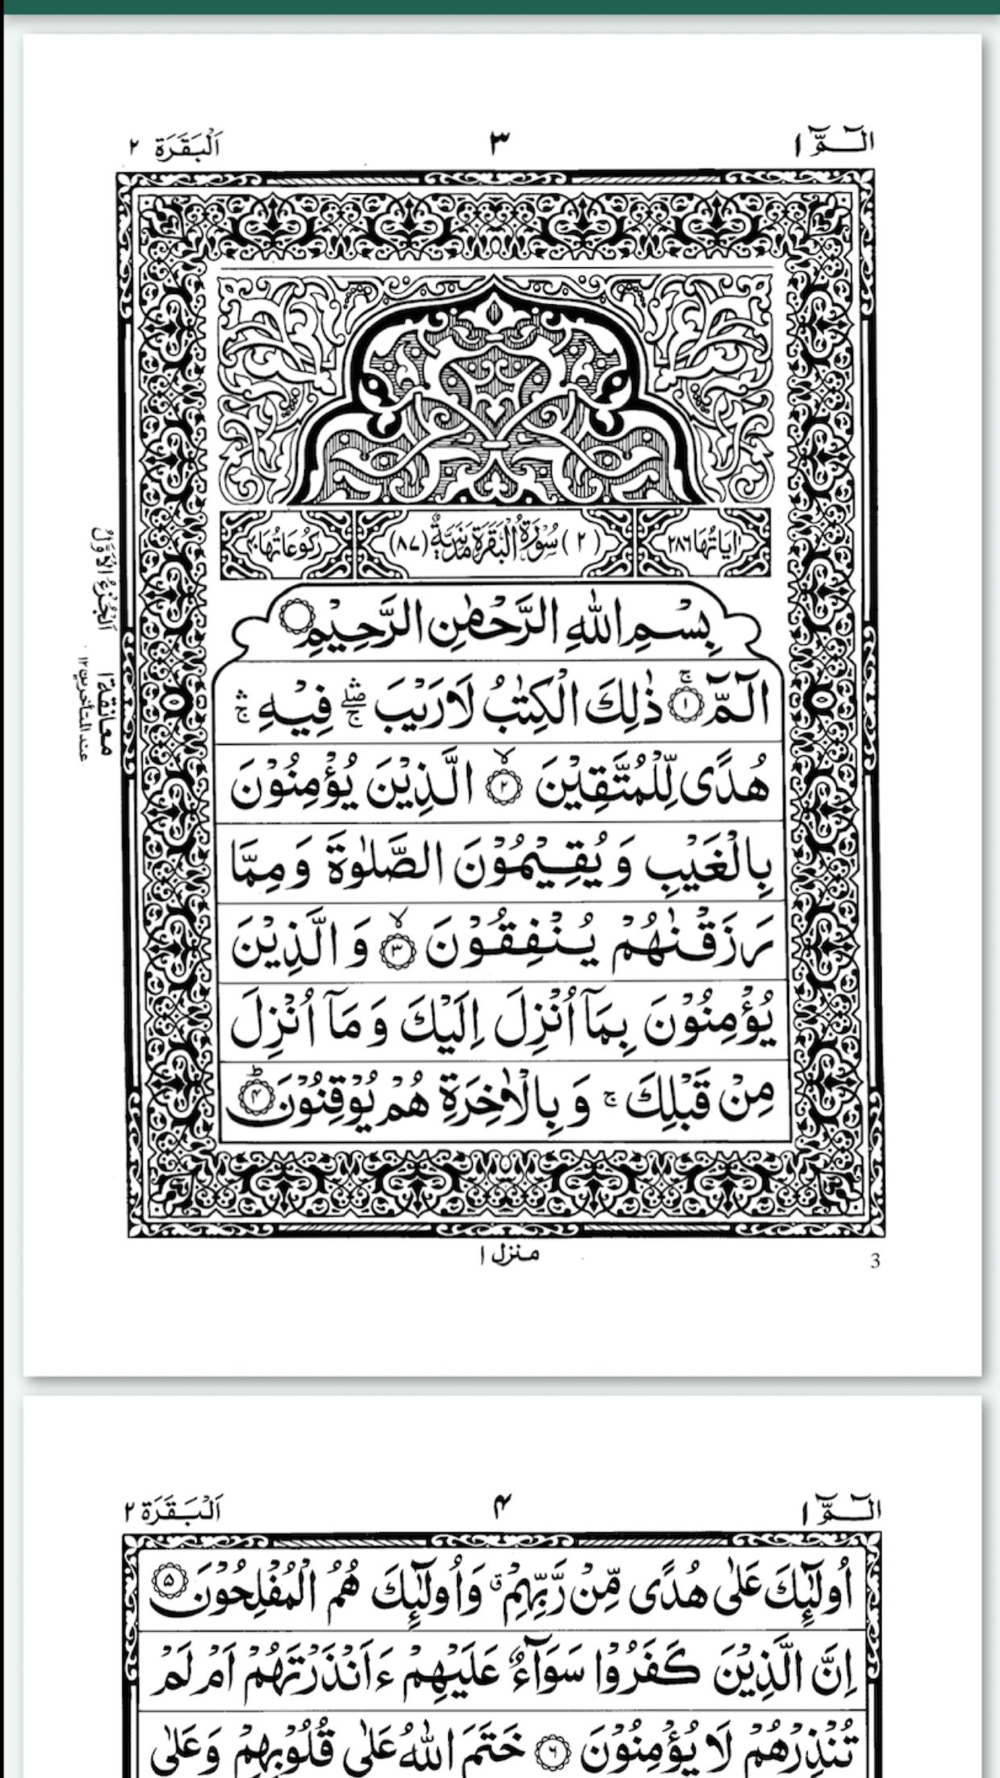 الٓمّٓ ١
٣
اَلْبَقَرَة ٢
اٰيَاتُهَا ٢٨٦
(٢) سُوْرَةُ الْبَقَرَةِ مَدَنِيَّةٌ (٨٧)
رُكُوْعَاتُهَا ٤٠
بِسْمِ اللّٰهِ الرَّحْمٰنِ الرَّحِيْمِ
الٓمّٓ ۚ ١ ذٰلِكَ الْكِتٰبُ لَا رَيْبَ ۛۖۚ فِيْهِ ۛۚ
هُدًى لِّلْمُتَّقِيْنَ ۙ ٢ الَّذِيْنَ يُؤْمِنُوْنَ
بِالْغَيْبِ وَ يُقِيْمُوْنَ الصَّلٰوةَ وَ مِمَّا
رَزَقْنٰهُمْ يُنْفِقُوْنَ ۙ ٣ وَ الَّذِيْنَ
يُؤْمِنُوْنَ بِمَاۤ اُنْزِلَ اِلَيْكَ وَ مَاۤ اُنْزِلَ
مِنْ قَبْلِكَ ۚ وَ بِالْاٰخِرَةِ هُمْ يُوْقِنُوْنَ ؕ ۴
اَلْجُزْءُ الْاَوَّلُ
معانقة ١
عند المتاخرين ١٢
منزل ١
3
الٓمّٓ ١
۴
اَلْبَقَرَة ٢
اُولٰٓئِكَ عَلٰى هُدًى مِّنْ رَّبِّهِمْ ۗ وَ اُولٰٓئِكَ هُمُ الْمُفْلِحُوْنَ ۵
اِنَّ الَّذِيْنَ كَفَرُوْا سَوَآءٌ عَلَيْهِمْ ءَاَنْذَرْتَهُمْ اَمْ لَمْ
تُنْذِرْهُمْ لَا يُؤْمِنُوْنَ ٦ خَتَمَ اللّٰهُ عَلٰى قُلُوْبِهِمْ وَعَلٰى